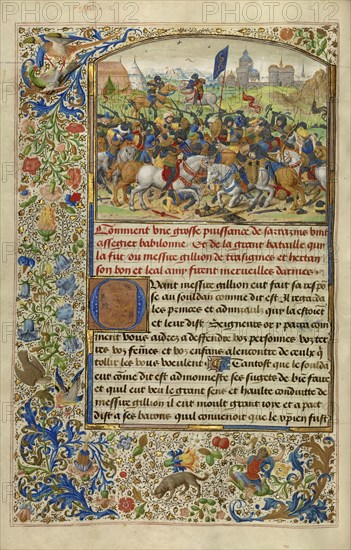 Comment une grosse puissance de sarrazins vint
assegier babilonne. Et de la grant bataille qui
la fut ou messire gillion de trasignies et hertan
son bon et leal amy firent merveilles darmes
Quant messire gillion eut fait sa respo
se au souldan comme dit est Il regarda
les princes et admiraulz qui la estoiet
et leur dist. Seigneurs or y parra com
ment vous aiderez a deffendre voz personnes voz ter
res voz femes et voz enfans alencontre de ceulx q
tollir les vous veulent Tantost que le soulda
eut come dit est admoneste ses sugetz de bie faire
et quil eut veu le grant sens et haulte conduitte de
messire gillion il eut moult grant ioye et a part
dist a ses barons quil convenoit que le xpien fust